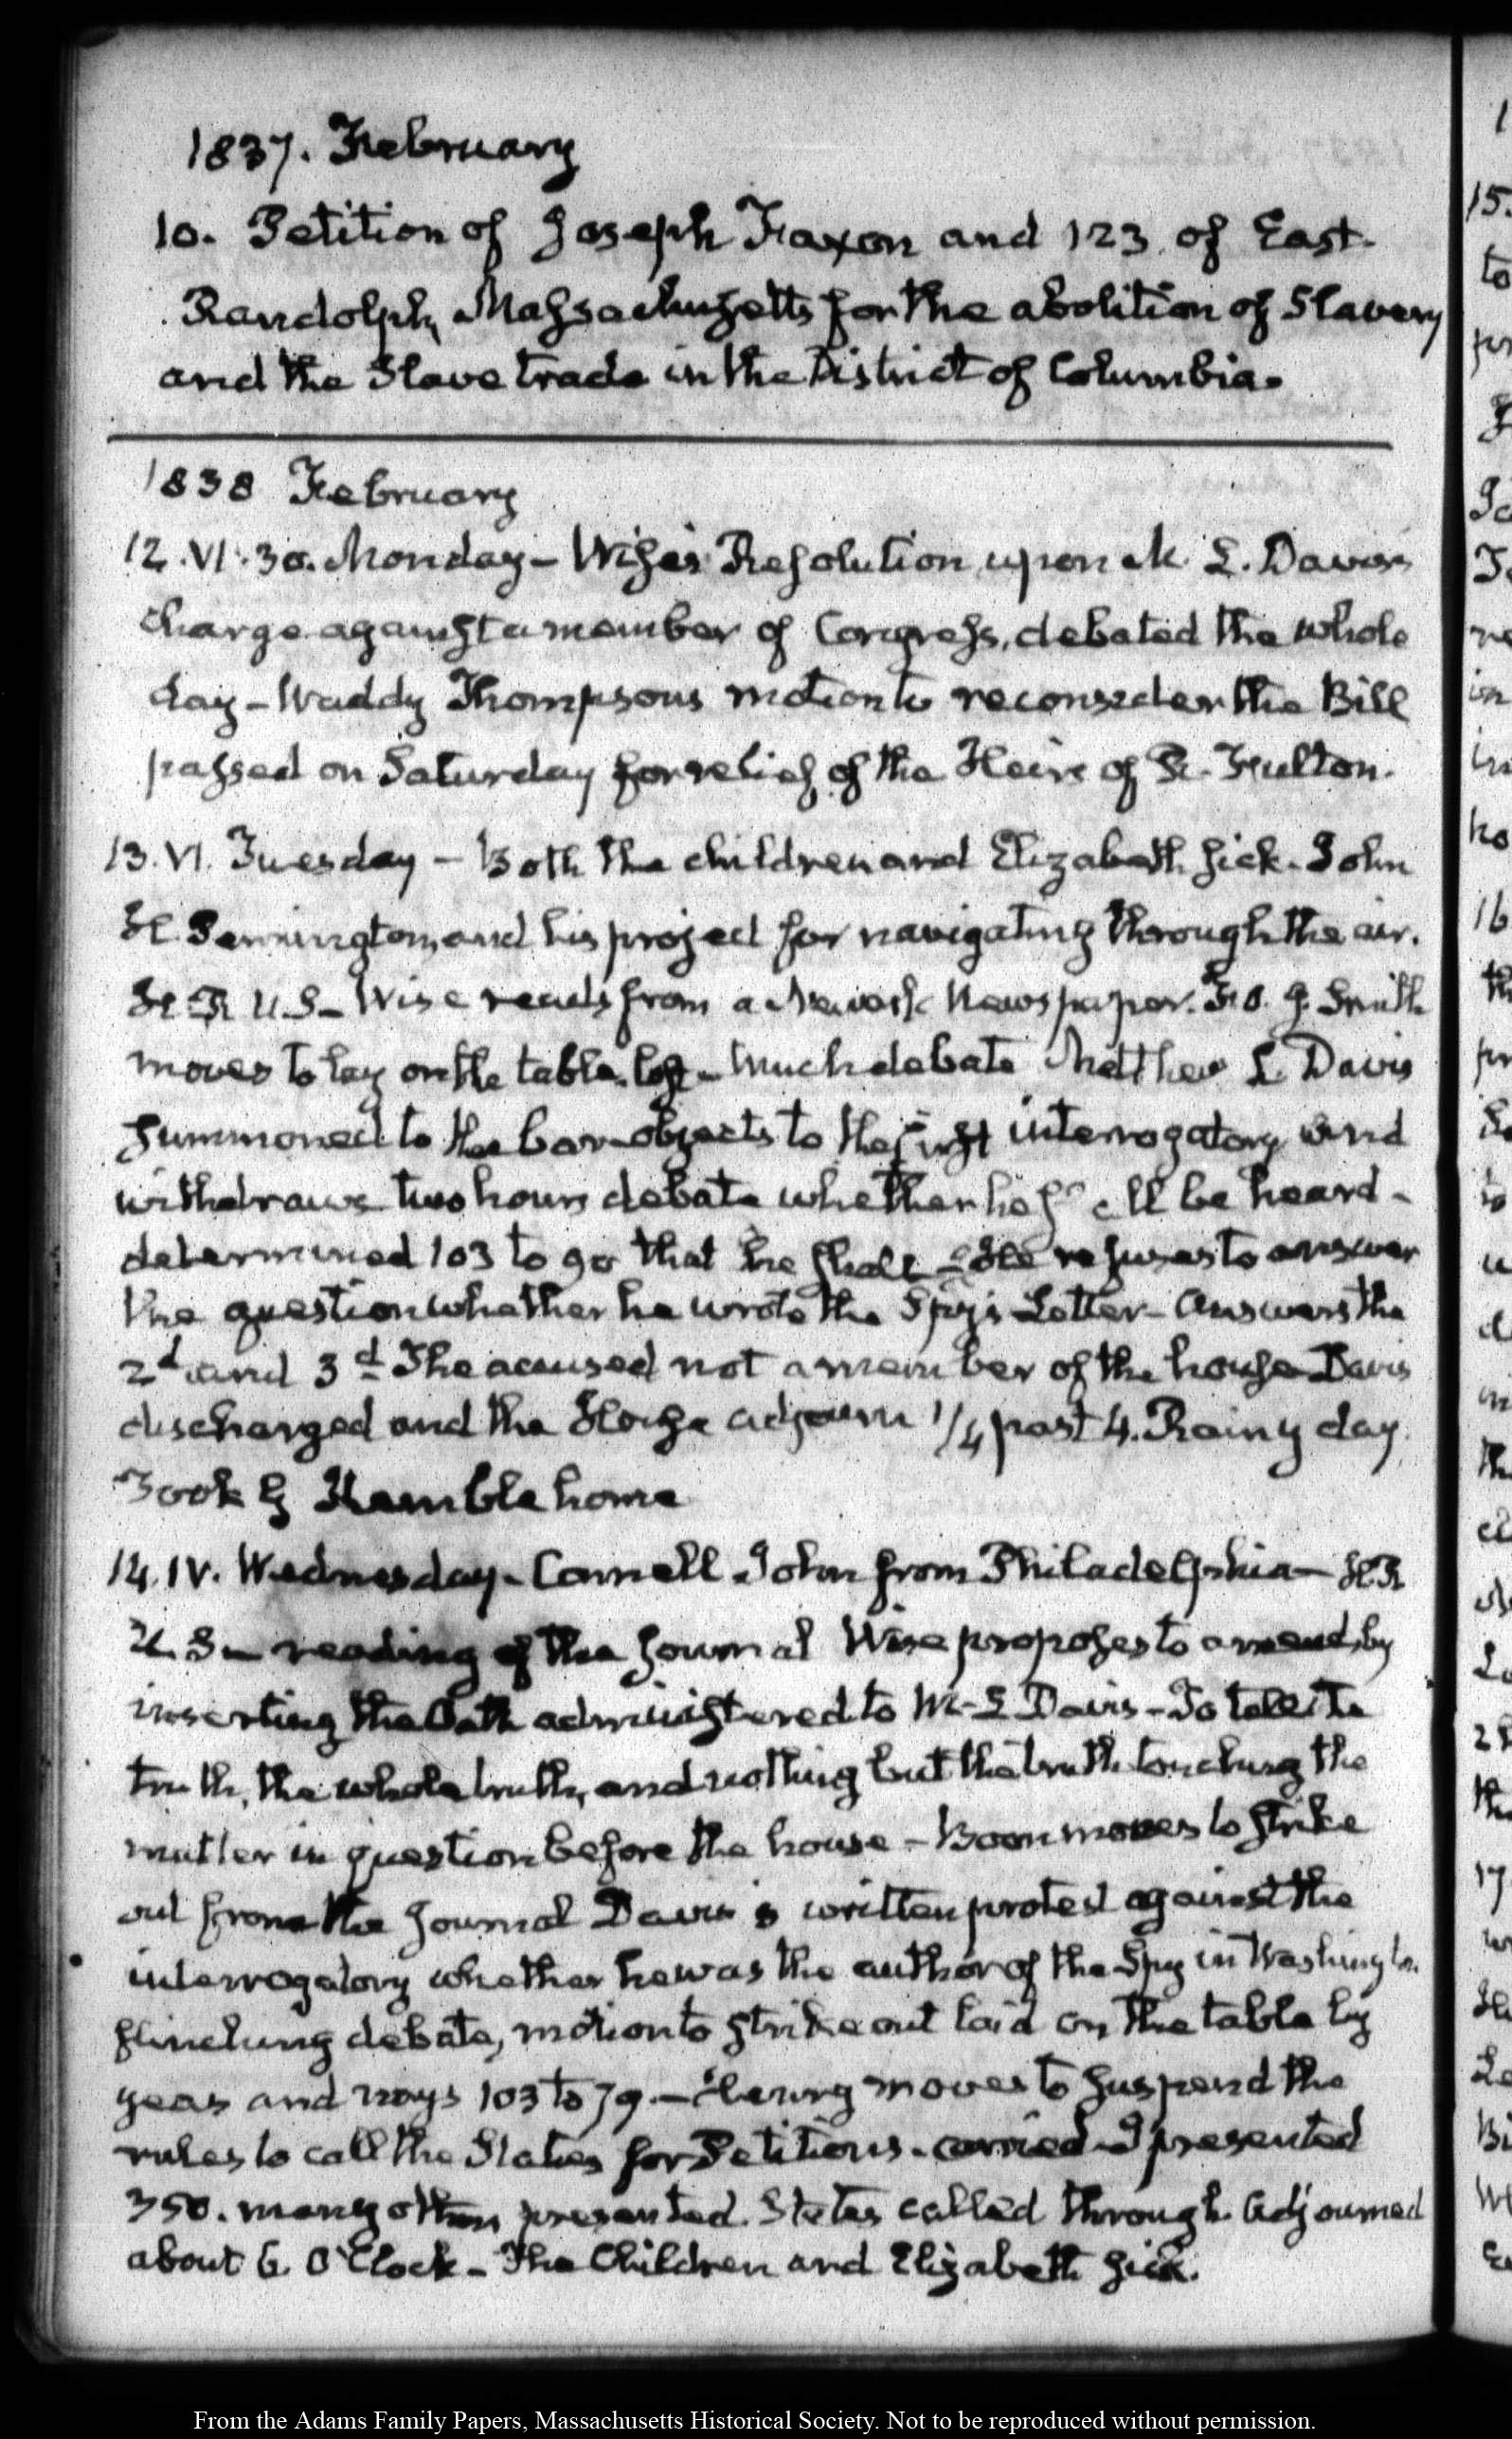 1837. February
10. Petition of Joseph Faxon and 123 of East
Randolph, Massachusetts for the abolition of Slavery
and the Slave trade in the District of Columbia.
1838 February
12. VI. 30. Monday – Wise's Resolution upon M. L. Davis's
charge against a member of Congress, debated the whole
day – Waddy Thompsons motion to reconsider the Bill
passed on Saturday for relief of the Heirs of R. Fulton.
13. VI. Tuesday – Both the children and Elizabeth sick. John
H. Pennington, and his project for navigating through the air.
H. R. U. S – Wise reads from a Newark Newspaper. F. O. J. Smith
moves to lay on the table. lost – Much debate Matthew L. Davis
summoned to the bar – objects to the first interrogatory and
withdraws two hours debate whether he shall be heard –
determined 103 to 90 that he shall – He refuses to answer
the question whether he wrote the Spy's Letter – Answers the
2d and 3d The accused not a member of the house Davis
discharged and the House adjourn 1/4 past 4. Rainy day.
Took Kemble home
14. IV. Wednesday – Connell John from Philadelphia – H. R
U. S – reading of the Journal Wise proposes to amend by
inserting the Oath administered to M. L Davis – To tell the
truth, the whole truth, and nothing but the truth touching the
matter in question before the house – Boon moves to strike
out from the Journal Davis's written protest against the
interrogatory whether he was the author of the Spy in Washington.
flinching debate, motion to strike out laid on the table by
yeas and nays 103 to 79. – moves to suspend the
rules to call the States for Petitions – carried – I presented
350. many others presented. States called through. Adjourned
about 6. O'Clock – The Children and Elizabeth sick.
15.
to
16
17
From the Adams Family Papers, Massachusetts Historical Society. Not to be reproduced without permission.